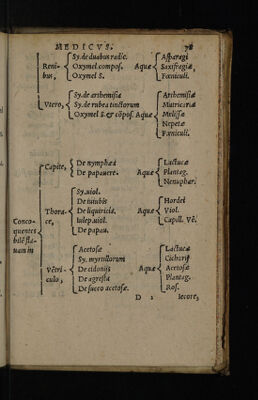 MEDICVS.
Sy. de duabus radic. Asparagi
Reni- Oxymel compos. Aquæ Saxifragiæ
bus, Oxymel S. Fœniculi.
Sy. de arthemisia Arthemisiæ
Vtero, Sy. de rubea tinctorum Matricariæ
Oxymel S. & cōpos. Aquæ Melissæ
Nepetæ
Fœniculi.
Capite, De nymphæa Lactucæ
De papauere. Aquæ Plantag.
Nenuphar.
Sy. viol.
De iuiubis Hordei
Thora- De liquiritia. Aquæ Viol.
ce, Iulep. viol. Capill. Vē.
De papau.
Conco-
quentes
bilē fla-
uam in
Acetosæ Lactucæ
Sy. myrtillorum Cichorij
Vētri- De cidoniis Aquæ Acetosæ
culo, De agresta Plantag.
De succo acetosæ. Ros.
D 2 Iecore,